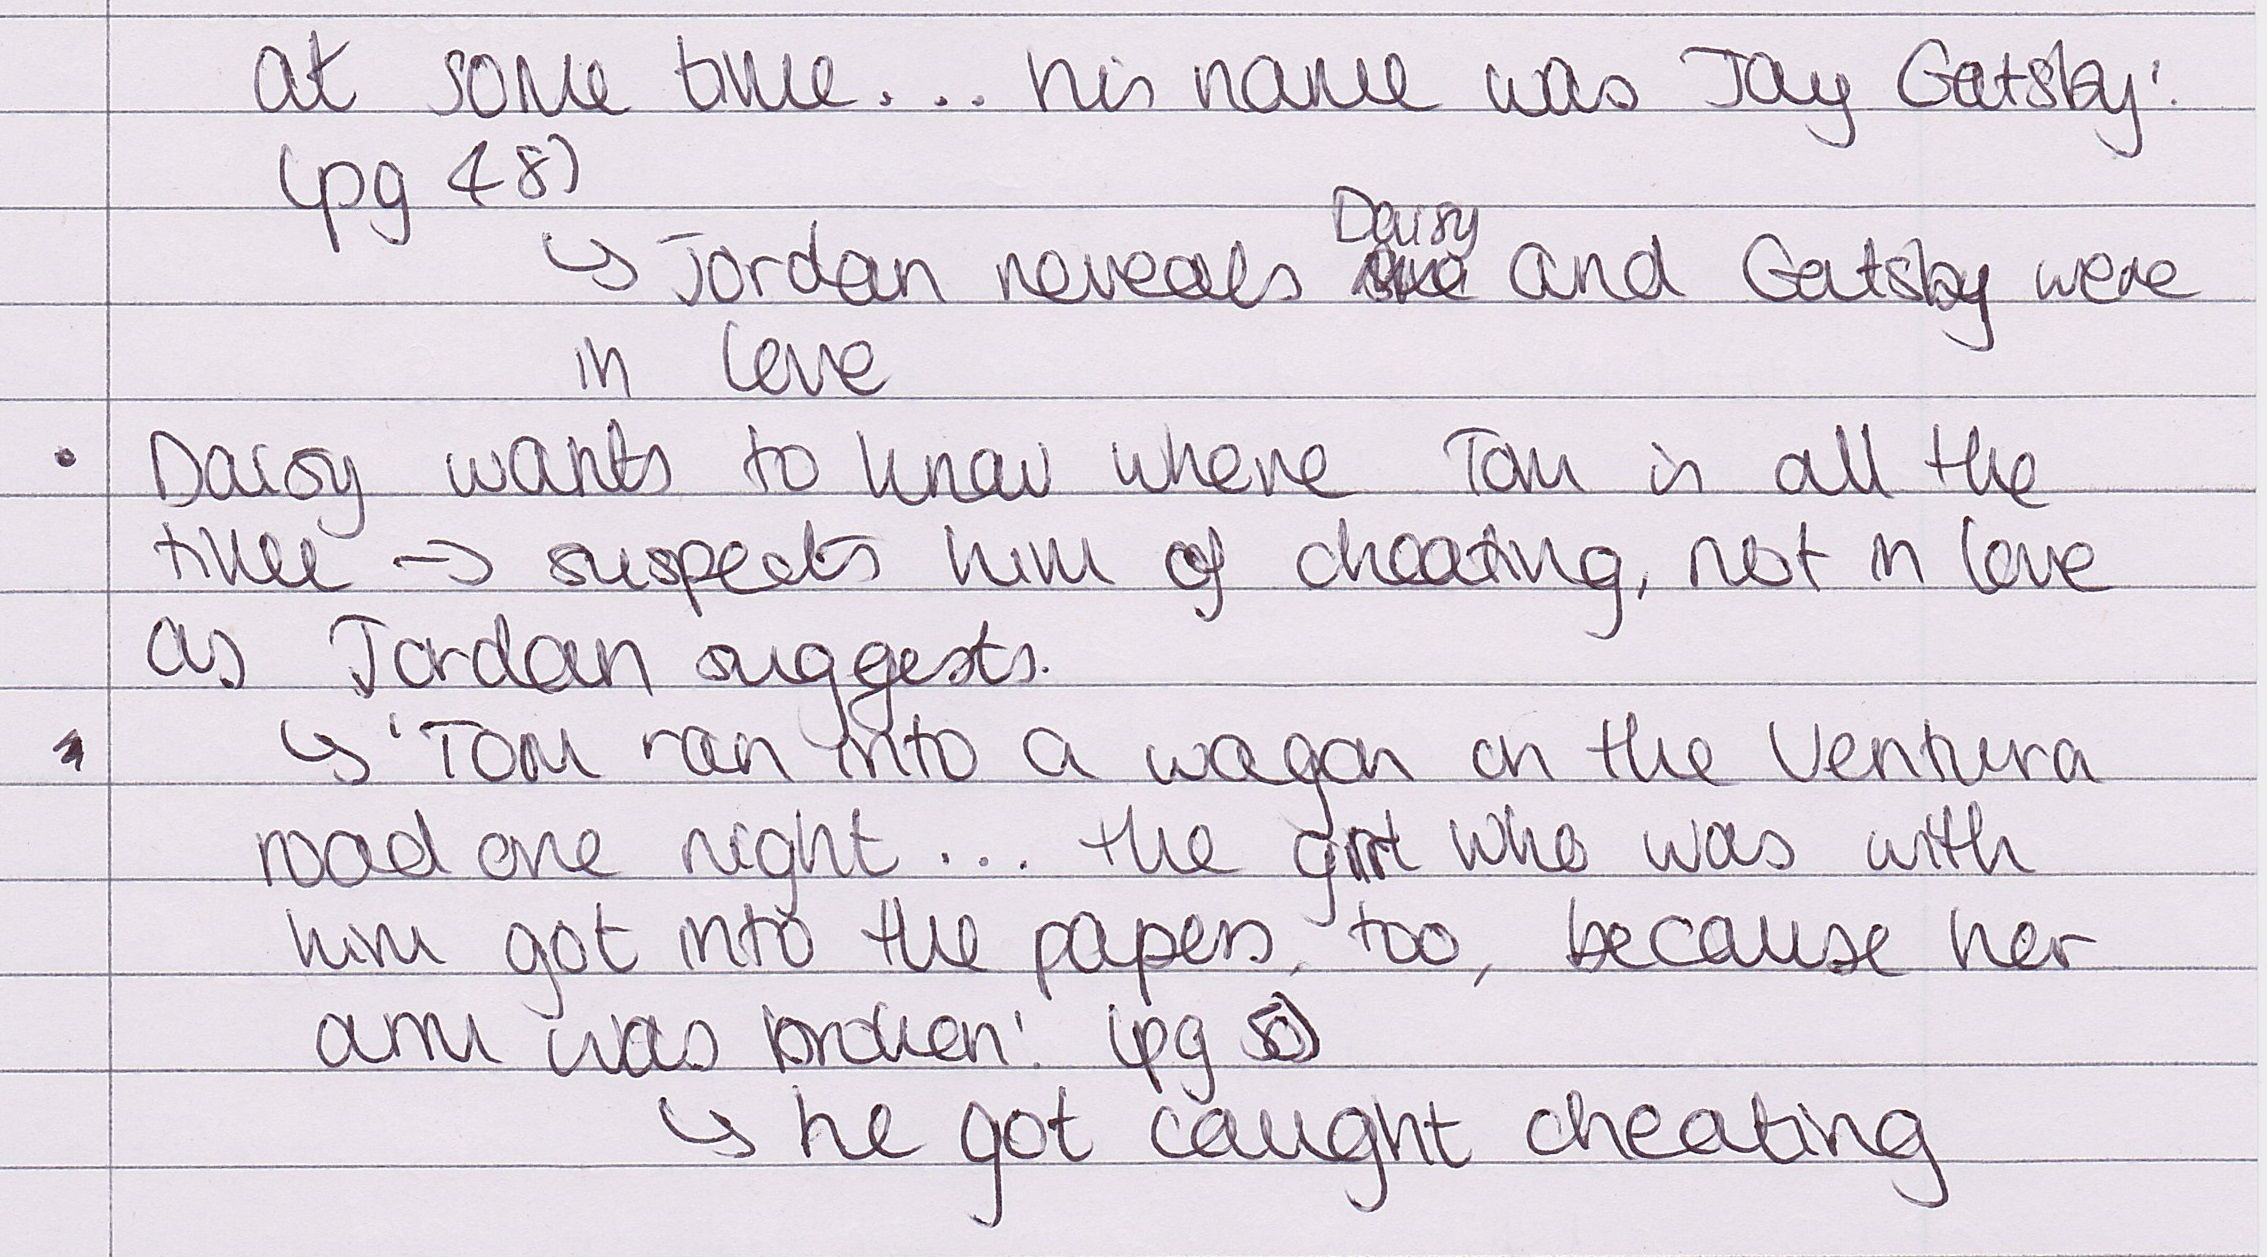 at some time.... his name was Jay Gatsby'.
(pg 48)
↳ Jordan reveals Daisy and Gatsby were
in love
• Daisy wants to know where Tom is all the
time → suspects him of cheating, not in love
as Jordan suggests.
↳ 'Tom ran into a wagon on the Ventura
road one night ... the girl who was with
him got into the papers, too, because her
arm was broken'. (pg 50)
↳ he got caught cheating